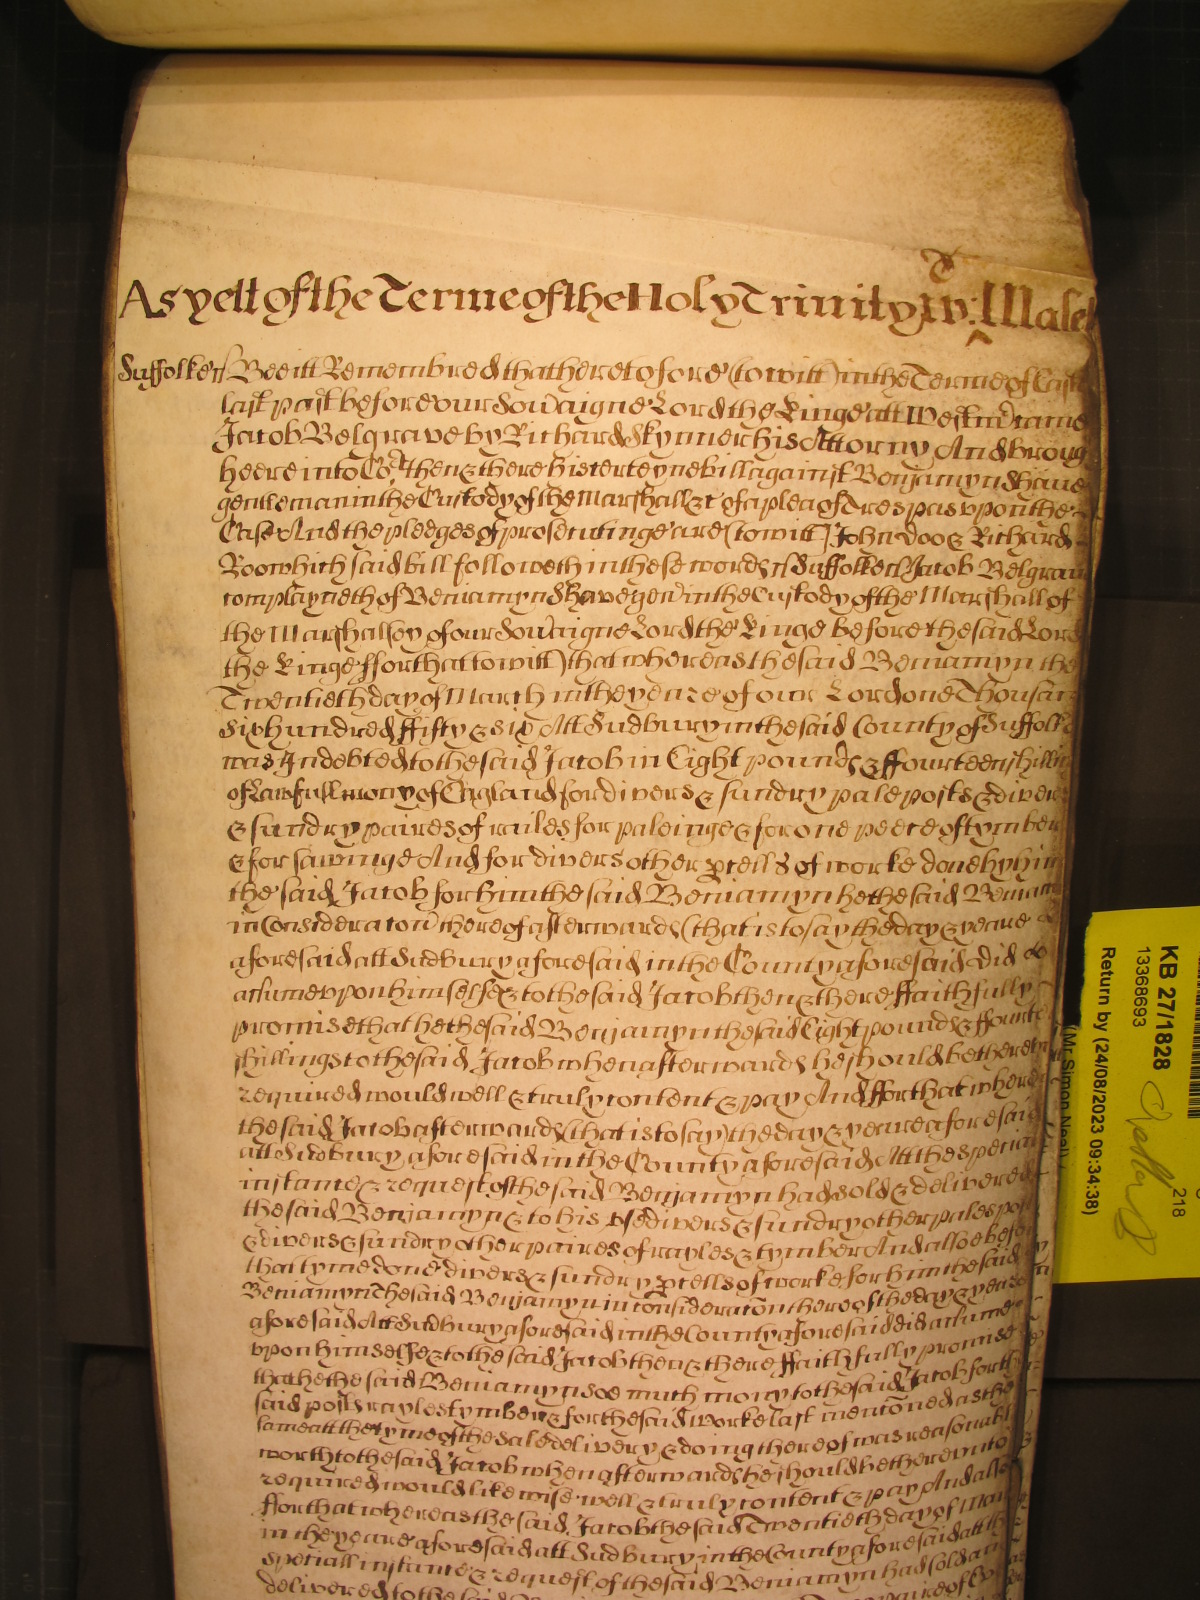 As yett of the Terme of the Holy Trinity Wit: Malet
Suffolke ss Bee itt Remembred that heretofore (to witt) in the Terme of East
last past before our Sov'aigne Lord the Kinge att Westm' came
Jacob Belgrave by Richard Skynner his Attorny And broug
heere into Co'rt then & there his certeyne bill against Benjamyn Shave
gentleman in the Custody of the Marshall &c of a plea of Trespas vpon the
Case And the pledges of prosecutinge are (to witt) John Doo & Richard
Roo which said bill followeth in these words ss Suffolke ss Jacob Belgrave
complayneth of Beniamyn Shave gen' in the Custody of the Marshall of
the Marshalsey of our Sov'aigne Lord the Kinge before the said Lord
the Kinge ffor that (to witt) that whereas the said Beniamyn the
Twentieth day of March in the yeare of our Lord one Thousan
Six hundred ffifty & six Att Sudbury in the said County of Suffolk
was Indebted to the said Jacob in Eight pounds & ffourteen shillin
of lawfull mony of England for divers & sundry pale posts & divers
& sundry paires of railes for paleinge & for one peece of tymber
& for sawinge And for divers other p'cells of worke done by him
the said Jacob for him the said Beniamyn he the said Beniam
in Consideraton' thereof afterwards (that is to say the day & yeare
aforesaid att Sudbury aforesaid in the County aforesaid did
assume vpon himselfe & to the said Jacob then & there ffaithfully
promise that he the said Benjamyn the said Eight pounds & ffourte
shillings to the said Jacob when afterwards he should be thereun
required would well & truly content & pay And ffor that where
the said Jacob afterwards (that is to say) the day & yeare aforesaid
att Sudbury aforesaid in the County aforesaid Att the speciall
instance & request of the said Benjamyn had sold & delivered
the said Benjamyn & to his vse divers & sundry other pales pos
& divers & sundry other paires of rayles & tymber And alsoe before
that tyme done divers & sundry p'cells of worke for him the said
Beniamyn The said Benjamyn in consideraton thereof the day & yeare
aforesaid Att Sudbury aforesaid in the County aforesaid did assume
vpon himselfe & to the said Jacob then & there ffaithfully promise
that he the said Beniamyn soe much mony to the said Jacob for th
said posts rayles tymber & for the said worke last mentoned as the
same att the tyme of the sale delivery & doing thereof was reasonabl
worth to the said Jacob when afterwards he should be therevnto
required would likewise well & truly content & pay And alsoe
ffor that whereas the said Jacob the said Twentieth day of Mar
in the yeare aforesaid att Sudbury in the County aforesaid att th
speciall instance & request of the said Beniamyn had sold an
delivered to the said
KB 27/1828
13368693
Return by (24/08/2023 09:34:38)
(Mr Simon Neal)
218